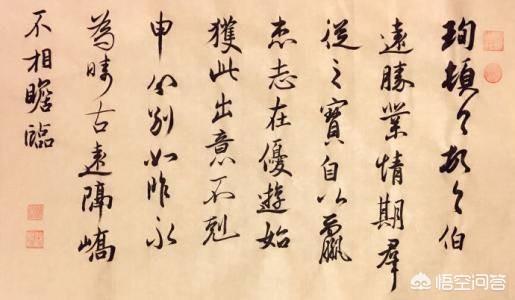 珣頓首頓首伯
遠勝業情期羣
從之寶自以羸
患志在優遊始
獲此出意不剋
申分別如昨永
為疇古遠隔嶠
不相瞻臨
悟空问答